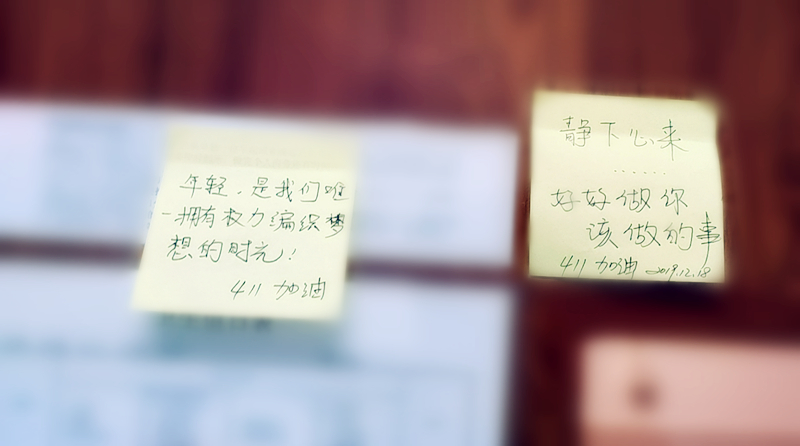 年轻，是我们唯
一拥有权力编织梦
想的时光！
411 加油
静下心来
......
好好做你
该做的事
411 加油 2019.12.18